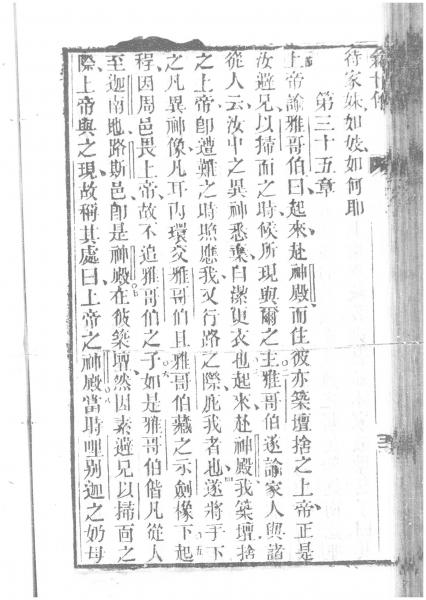 待家妹如妓如何耶
第三十五章
上帝諭雅哥伯曰起來赴神殿而住彼亦築壇捨之上帝正是
汝避兄以掃面之時候所現與爾之主雅哥伯遂諭家人與諸
從人云汝中之異神悉棄自潔更衣也起來赴神殿我築壇捨
之上帝卽遭難之時照應我又行路之際庇我者也遂將手下
之凡異神像凡耳內環交雅哥伯且雅哥伯藏之示劍橡下起
程因周邑畏上帝故不追雅哥伯之子如是雅哥伯偕凡從人
至迦南地路斯邑卽是神殿在彼築壇然因素避兄以掃面之
際上帝與之現故稱其處曰上帝之神殿當時哩別迦之奶母